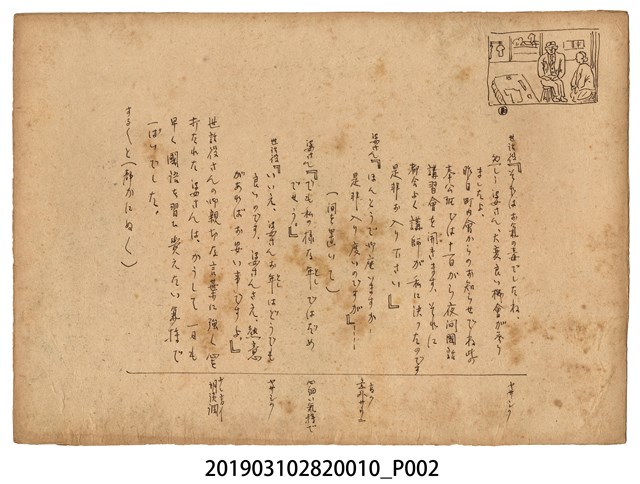 世話役『それはお気の毒でしたね。
然し、婆さん、大変良い機会が参り
ましたよ。
昨日町内会からのお知らせでね此の
奉公班では十日から夜間国語
講習会を開きます。それに
都合よく講師が私に決ったのです
是非お入り下さい』
婆さん『ほんとうで御座いますか。
是非入り度いのですが』……
(間を置いて)
婆さん『でも私の様な年ではだめ
でせう。』
世話役『いいえ、婆さんお年はどうでも
良いのです、婆さんさえ、熱意
があればお安い事ですよ。』
世話役さんの御親切な言葉に強く心を
打たれた婆さんは、かうして一日も
早く国語を習って覚えたい気持で
一ぱいでした。
するりと(静かにぬく)
ヤサシク
心細い気持で
ヤサシク
明快調
201903102820010_P002